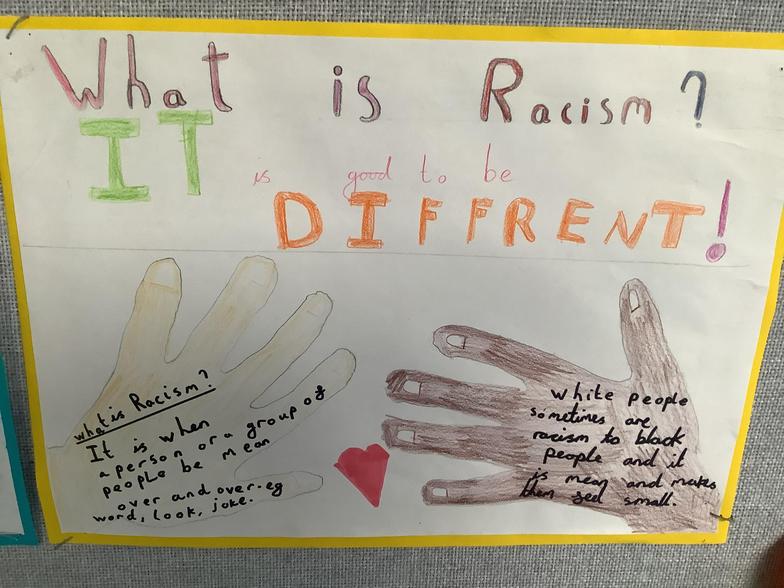 What is Racism?
IT is good to be
DIFFRENT!
what is Racism?
It is when
a person or a group of
people be mean
over and over. eg
word, look, joke.
White people
sometimes are
racism to black
people and it
is mean and makes
them feel small.